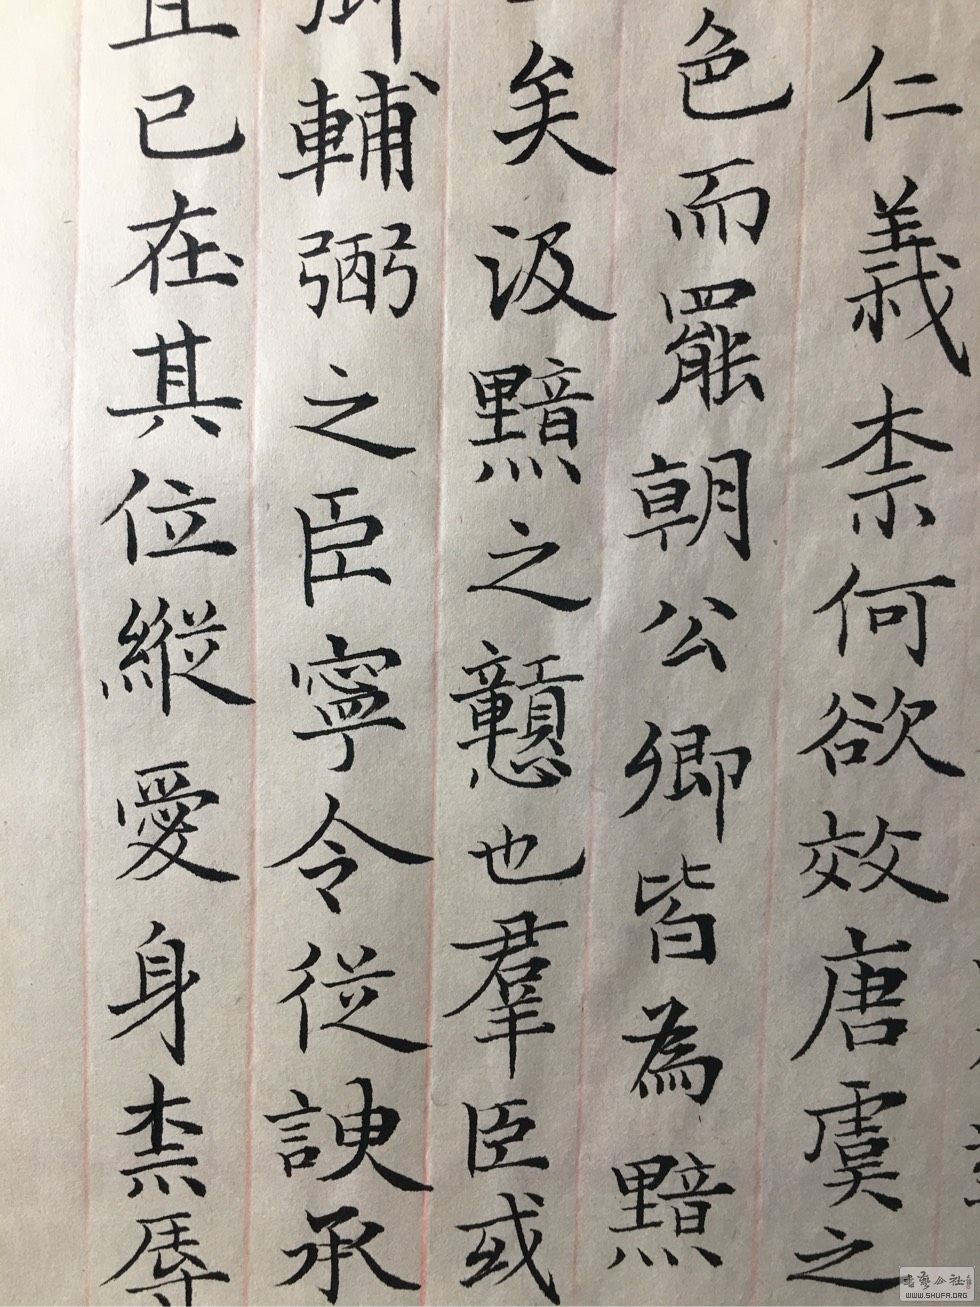 仁義柰何欲效唐虞之
色而罷朝公卿皆為黯
矣汲黯之戇也羣臣或
輔弼之臣寧令從諛承
且已在其位縱愛身柰辱
WWW.SHUFA.ORG